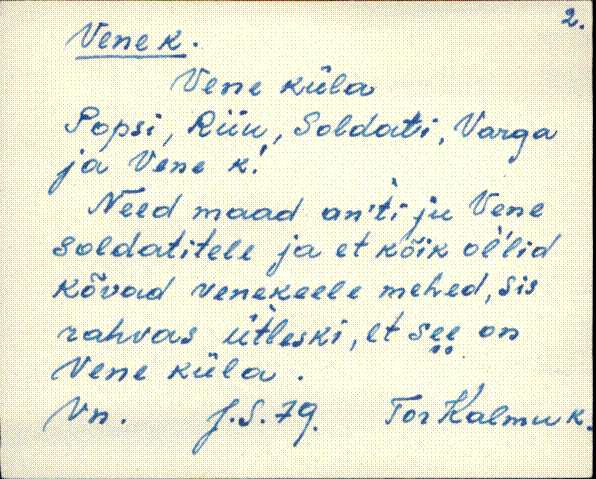 2.
Vene k.
Vene küla
Popsi, Riiu, Soldati, Varga
ja Vene k!
Need maad an'ti ju Vene
soldatitele ja et kõik ol'lid
kõvad venekeele mehed, sis
rahvas ütleski, et see on
Vene küla.
Vn. J.S.79. Tor Kalmuk.